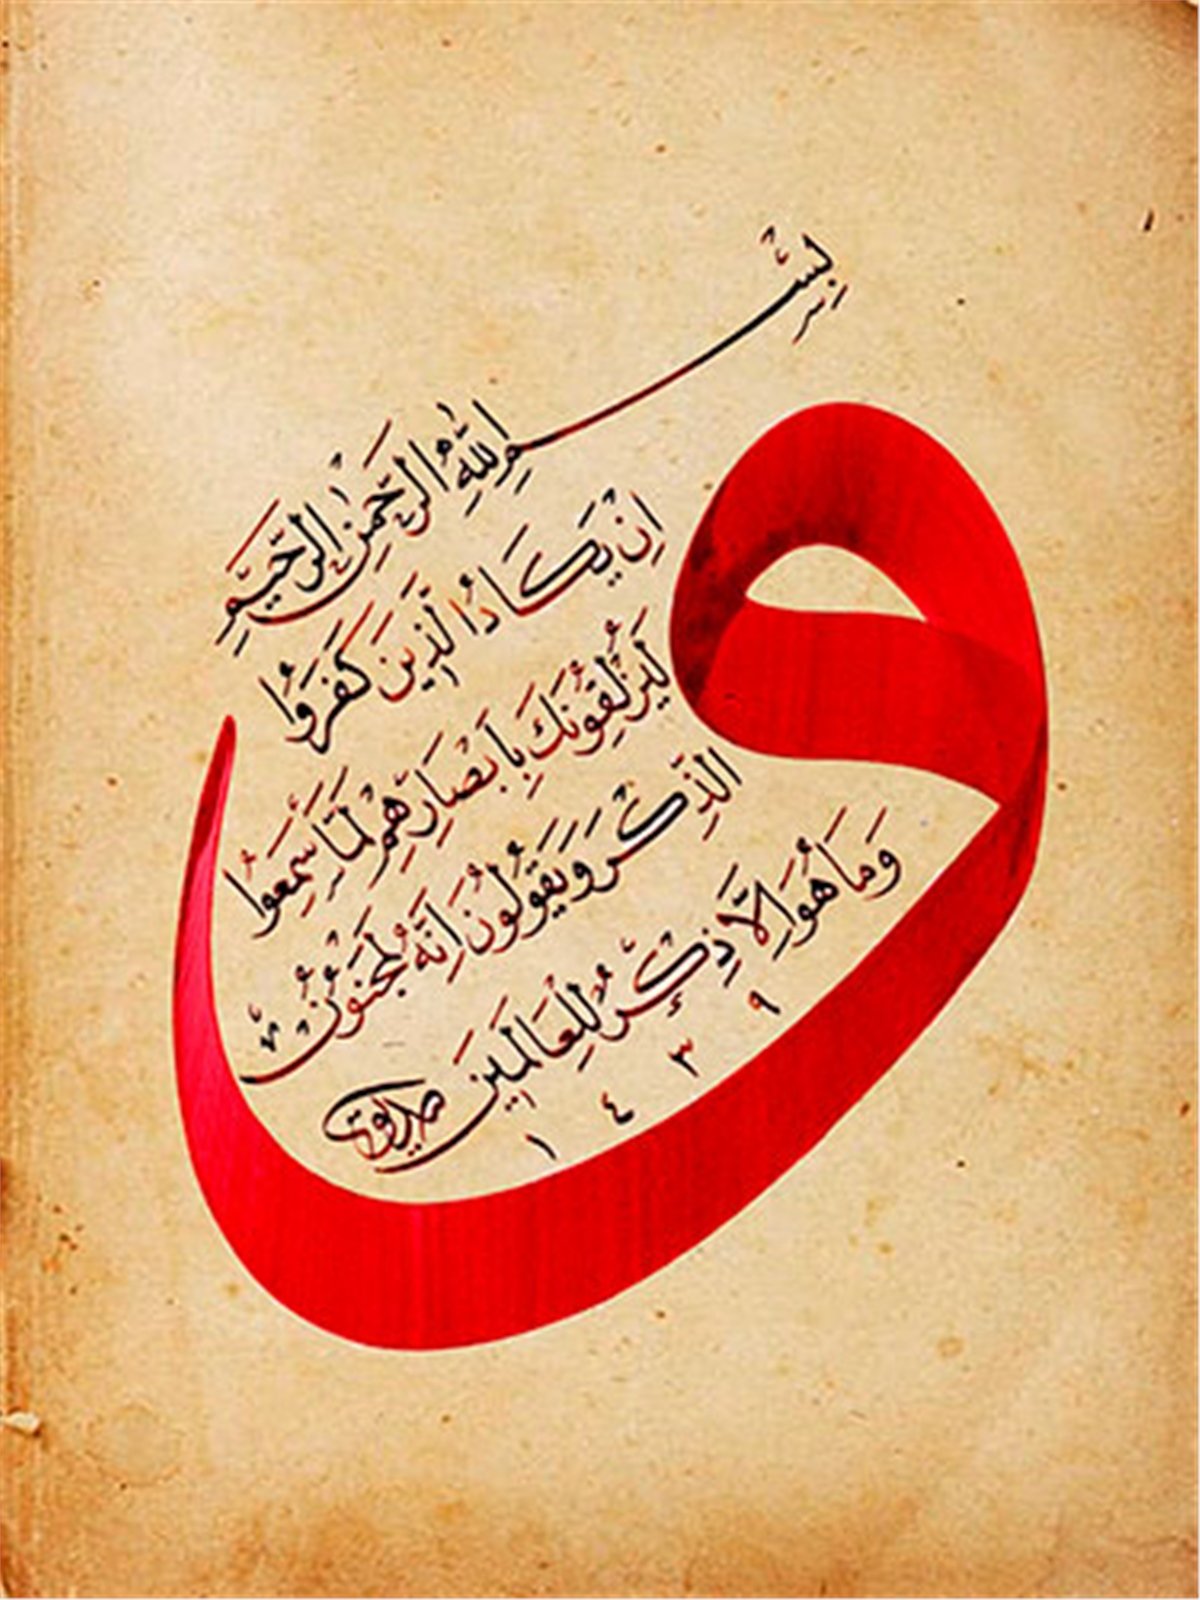 بِسْمِ اللّٰهِ الرَّحْمٰنِ الرَّحِيمِ
و
اِنْ يَكَادُ الَّذِينَ كَفَرُوا
لَيُزْلِقُونَكَ بِاَبْصَارِهِمْ لَمَّا سَمِعُوا
الذِّكْرَ وَيَقُولُونَ اِنَّهُ لَمَجْنُونٌ
وَمَا هُوَ اِلَّا ذِكْرٌ لِلْعَالَمِينَ
١٤٣٩